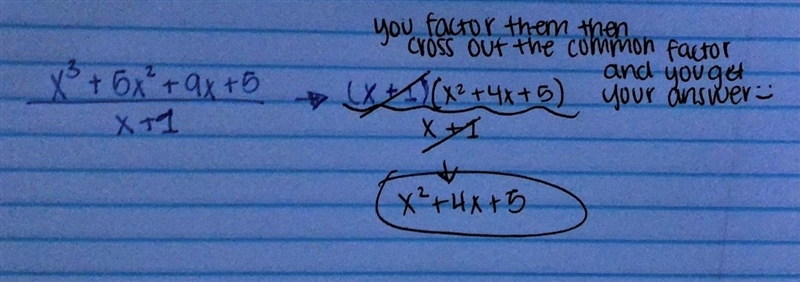 you factor them then
cross out the common factor
and you get
your answer :)
x³ + 5x² + 9x + 5
x + 1
→ (x + 1)(x² + 4x + 5)
x + 1
↓
x² + 4x + 5